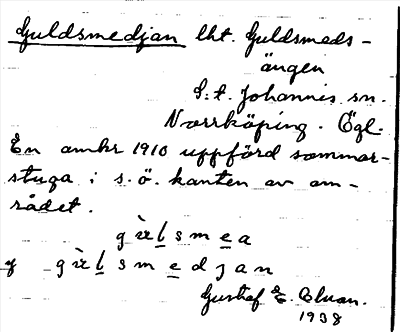 Guldsmedjan lht. Guldsmeds-
ängen
S:t. Johannis sn.
Norrköping. Ögl.
En omkr 1910 uppförd sommar-
stuga i s.ö. kanten av om-
rådet.
Gustaf E.
1938